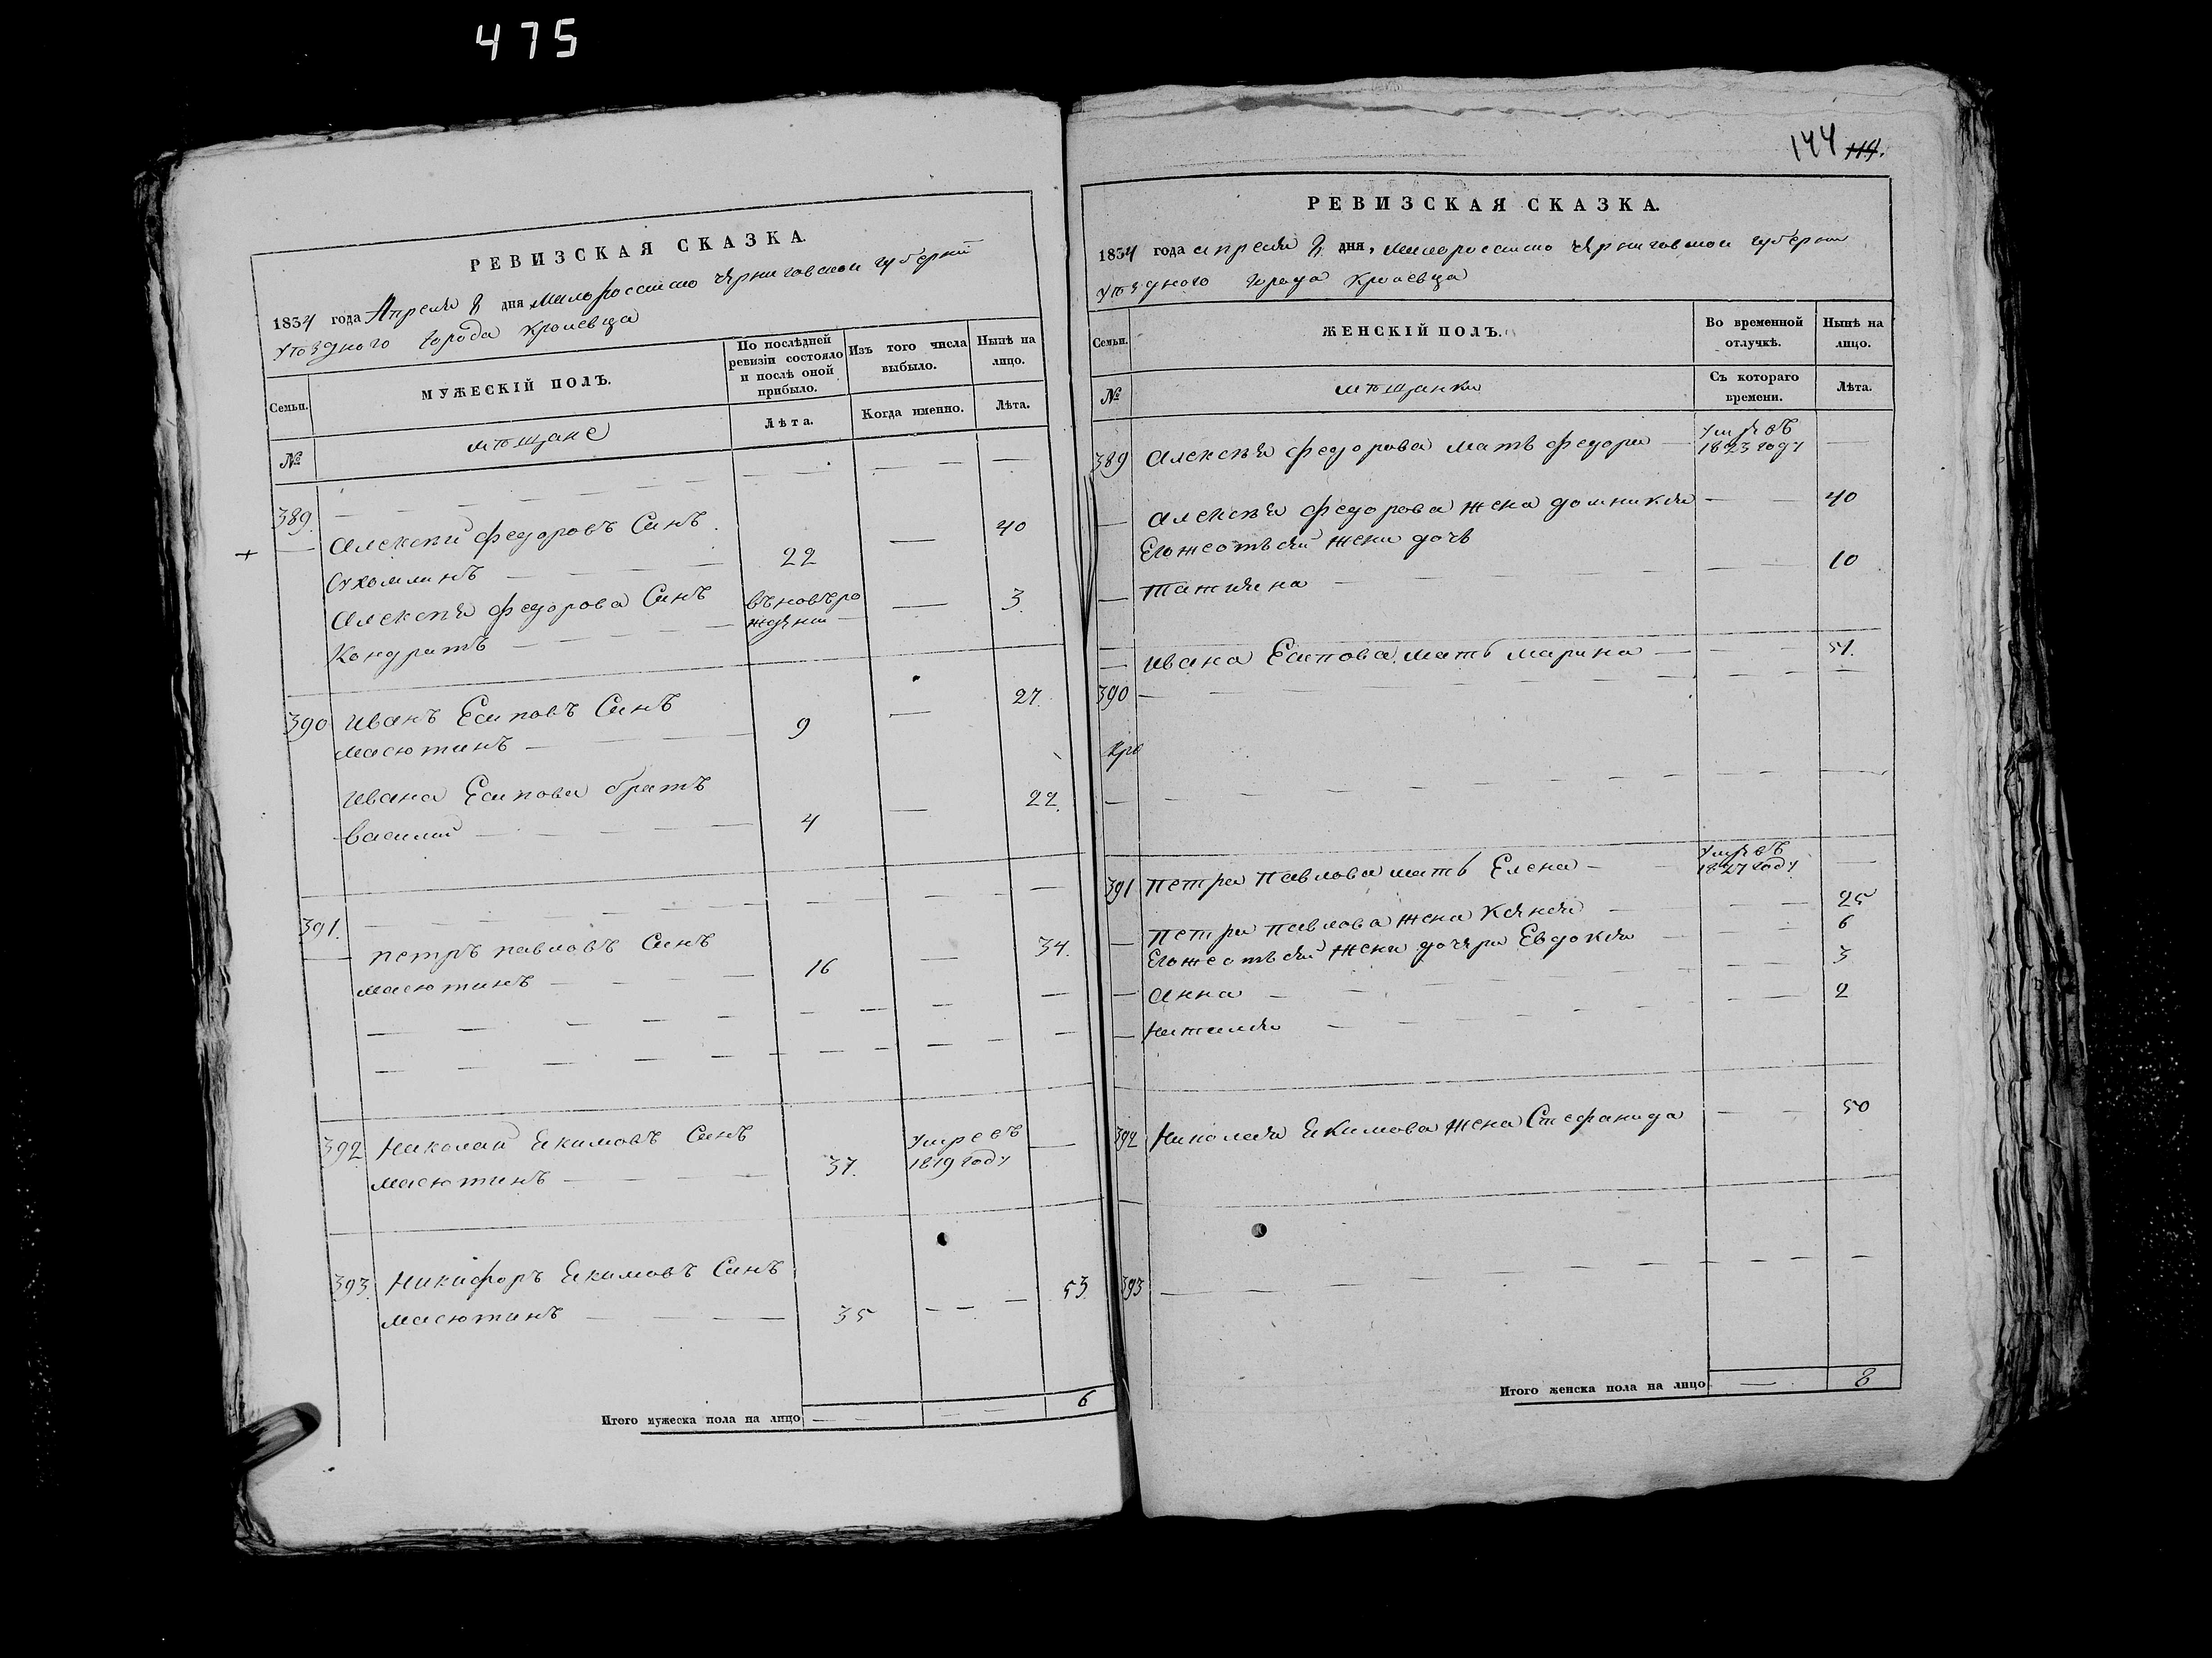 475
РЕВИЗСКАЯ СКАЗКА.
1834 года Апреля 8 дня Малороссийско Черниговской губернии
уѣзднаго города Кролевца
Семьи.
МУЖЕСКІЙ ПОЛЪ.
По послѣдней ревизіи состояло и послѣ оной прибыло.
Изъ того числа выбыло.
Нынѣ на лицо.
№
мѣщане
Лѣта.
Когда именно.
Лѣта.
389.
Алексѣй Федоровъ Синъ
Сухомлинъ — 22 — 40
Алексѣя Федорова Синъ
Кондратъ — въновѣро
ждѣнии — 3.
390 Иванъ Есиповъ Синъ
Масютинъ — 9 — 27.
Ивана Есипова братъ
Василий — 4 — 22.
391.
Петръ Павловъ Синъ
Масютинъ — 16 — 34.
392 Николай Екимовъ Синъ
Масютинъ — 37. умре въ
1819 году —
393. Никифоръ Екимовъ Синъ
Масютинъ — 35 — 53.
Итого мужеска пола на лицо — — 6
144 119.
РЕВИЗСКАЯ СКАЗКА.
1834 года апреля 8 дня, Малороссийско Черниговской губернии
уѣзднаго города Кролевца
Семьи.
ЖЕНСКІЙ ПОЛЪ.
Во временной отлучкѣ.
Нынѣ на лицо.
№
мѣщанки
Съ котораго времени.
Лѣта.
389 Алексѣя Федорова мать Федора — умре въ
1823 году —
— Алексѣя Федорова жена Домникия — 40
Егожеотъсей жени дочь
— Татияна — 10
— Ивана Есипова мать Марина — 51.
390 —
Кро
391 Петра Павлова мать Елена — умре въ
1827 году —
— Петра Павлова жена Ксения — 25
Егожеотъсей жени дочери Евдокия — 6
— Анна — 3
— Наталия — 2
392 Николая Екимова жена Стефанида — 50
393 —
Итого женска пола на лицо — 8